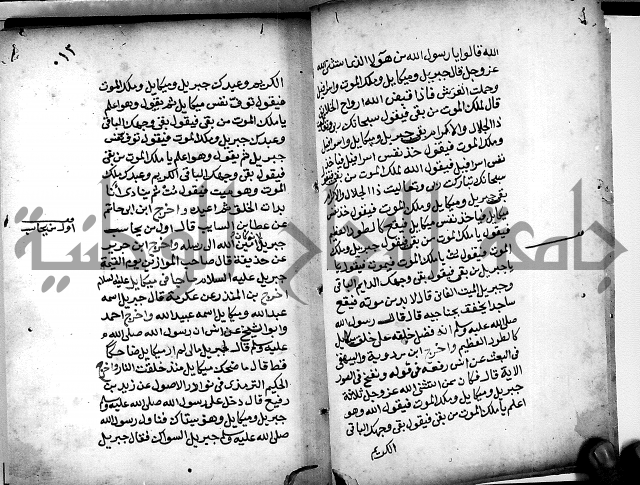 الله قالوا يا رسول الله من هؤلاء الذين استثنى الله
عز وجل قال جبريل وميكايل وملك الموت واسرافيل
وحملة العرش فاذا قبض الله ارواح الخلائق
قال لملك الموت من بقي فيقول سبحانك
ذا الجلال والاكرام بقي جبريل وميكايل واسرافيل
وملك الموت فيقول خذ نفس اسرافيل فياخذ
نفس اسرافيل فيقول الله لملك الموت من بقي فيقول
سبحانك تباركت ربي وتعاليت ذا الجلال والاكرام
بقي جبريل وميكايل وملك الموت فيقول خذ نفس
ميكايل فياخذ نفس ميكايل فيقع كالطود العظيم
فيقول يا ملك الموت من بقي فيقول جبريل وملك
الموت فيقول مت يا ملك الموت فيموت فيقول
يا جبريل من بقي فيقول بقي وجهك الدايم الباقي
وجبريل الميت الفاني قال لا بد من موته فيقع
ساجدا يخفق بجناحيه قال قال رسول الله
صلى الله عليه وسلم ان فضل خلقه على خلق ميكايل
كالطود العظيم واخرج ابن مردويه والبيهقي
في البعث عن انس رفعه في قوله ونفخ في الصور
الاية قال فكان ممن استثنى الله عز وجل ثلاثة
جبريل وميكايل وملك الموت فيقول الله وهو
اعلم يا ملك الموت من بقي فيقول بقي وجهك الباقي
الكريم
٠١٣
الكريم وعبدك جبريل وميكايل وملك الموت
فيقول توف نفس ميكايل ثم يقول وهو اعلم
يا ملك الموت من بقي فيقول بقي وجهك الباقي
وعبدك جبريل وملك الموت فيقول توف نفس
جبريل ثم يقول وهو اعلم يا ملك الموت من بقي
فيقول بقي وجهك الباقي الكريم وعبدك ملك
الموت وهو ميت فيقول مت ثم ينادي انا
بدات الخلق ثم اعيده واخرج ابن ابي حاتم
عن عطا بن السايب قال اول من يحاسب
جبريل لانه كان امين الله الى رسله واخرج ابن جرير
عن حذيفة قال صاحب الموازين يوم القيمة
جبريل عليه السلام
اخرج ابن المنذر عن عكرمة قال جبريل اسمه
عبد الله وميكايل اسمه عبيد الله واخرج احمد
وابو الشيخ عن انس ان رسول الله صلى الله
عليه وسلم قال لجبريل مالي لم ار ميكايل ضاحكا
قط قال ما ضحك ميكايل منذ خلقت النار واخرج
الحكيم الترمذي في نوادر الاصول عن زيد بن
رفيع قال دخل على رسول الله صلى الله عليه وسلم
جبريل وميكايل وهو يستاك فناول رسول الله
صلى الله عليه وسلم جبريل السواك فقال جبريل
اول من يحاسب
جامعة النجاح الوطنية